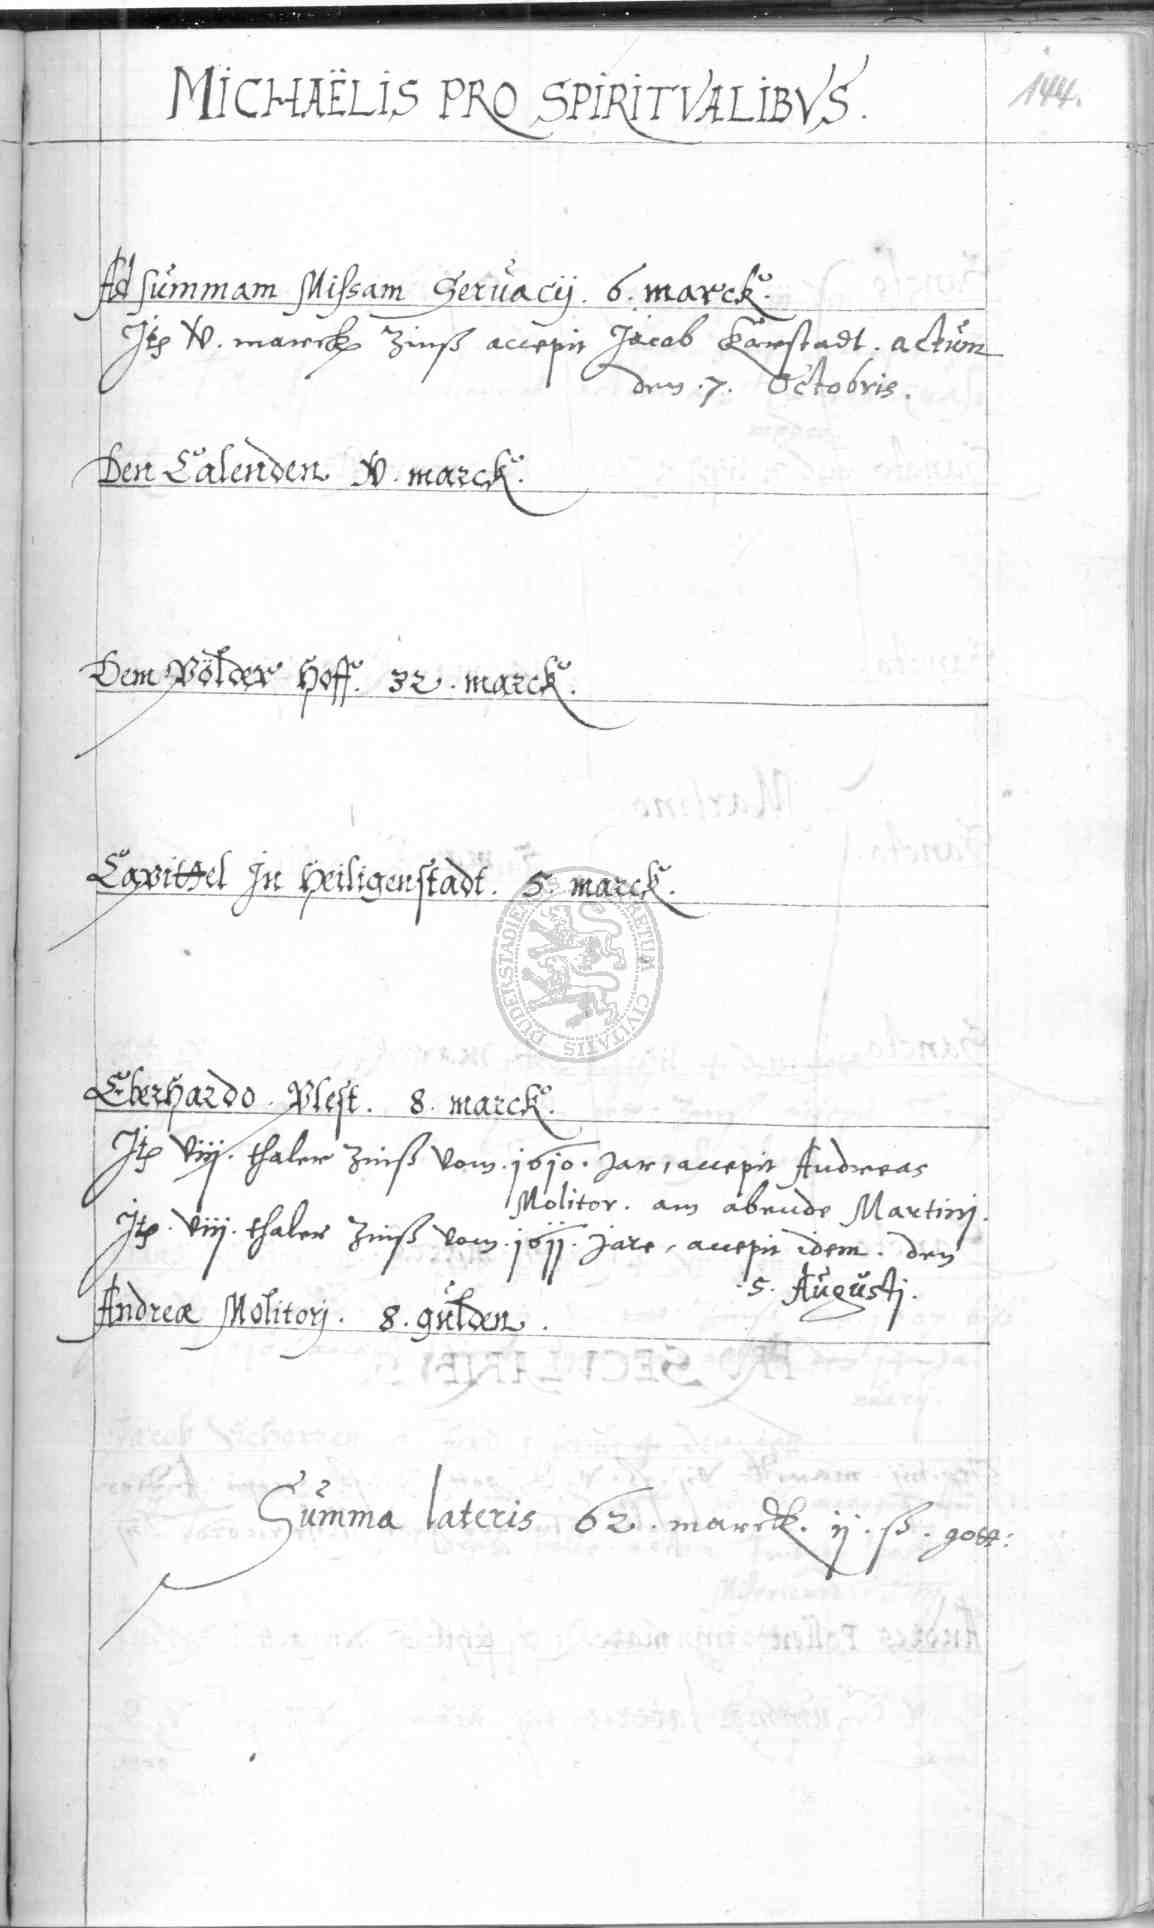 MICHAËLIS PRO SPIRITVALIBVS.
144.
Ad summam Missam Servacij. 6. marck.
Jtem v. marck zinß accepit Jacob Karstadt. actum
den .7. Octobris.
Den Calenden v. marck.
Dem Völder Hoff. 32. marck.
Capittel Jn Heiligenstadt. 5. marck.
Eberhardo Plest. 8. marck.
Jtem viij. thaler zinß vom .1610. Jar, accepit Andreas
Molitor. am abende Martinj.
Jtem viij. thaler zinß vom .1611. Jare, accepit idem. den
.5. Augustj.
Andreæ Molitorj. 8. gulden.
Summa lateris 62. marck. ij. ß. gott:
DUDERSTADIENSIS CIVITATIS